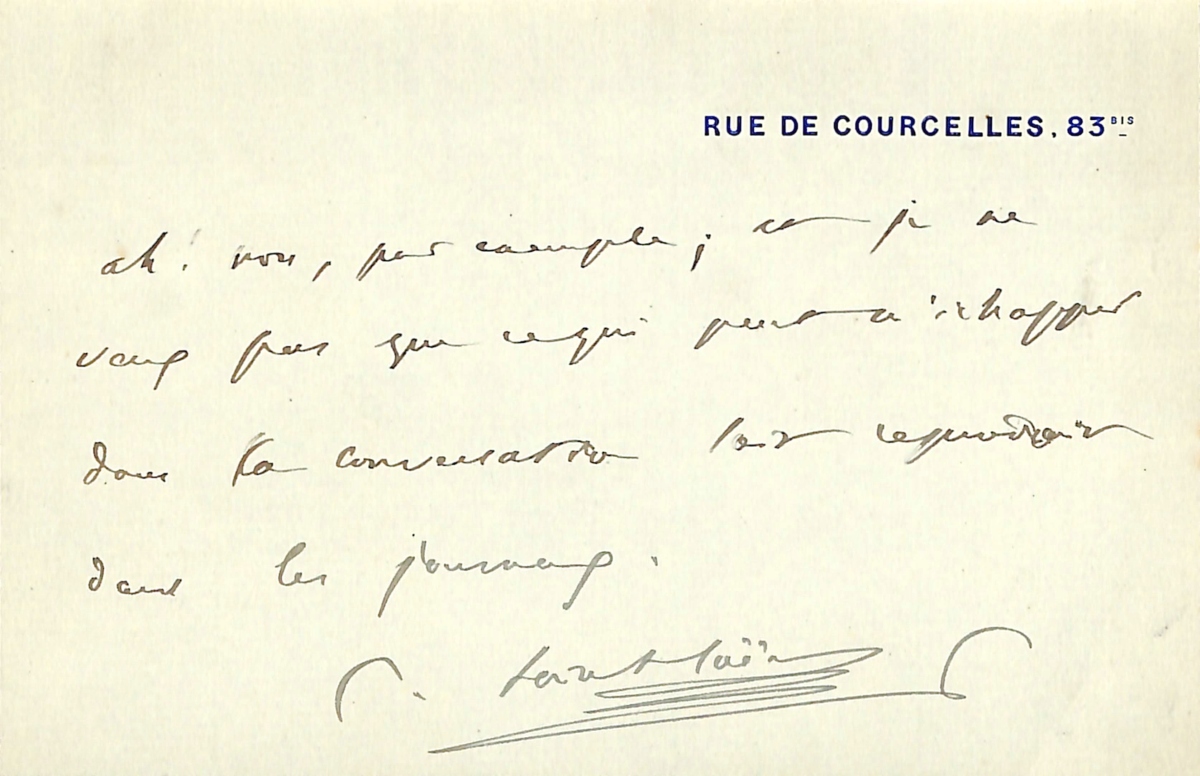 RUE DE COURCELLES, 83BIS
ah! non, par exemple; car je ne
veux pas que ce qui peut m'échapper
dans la conversation soit reproduit
dans les journaux.
C. Saint-Saëns